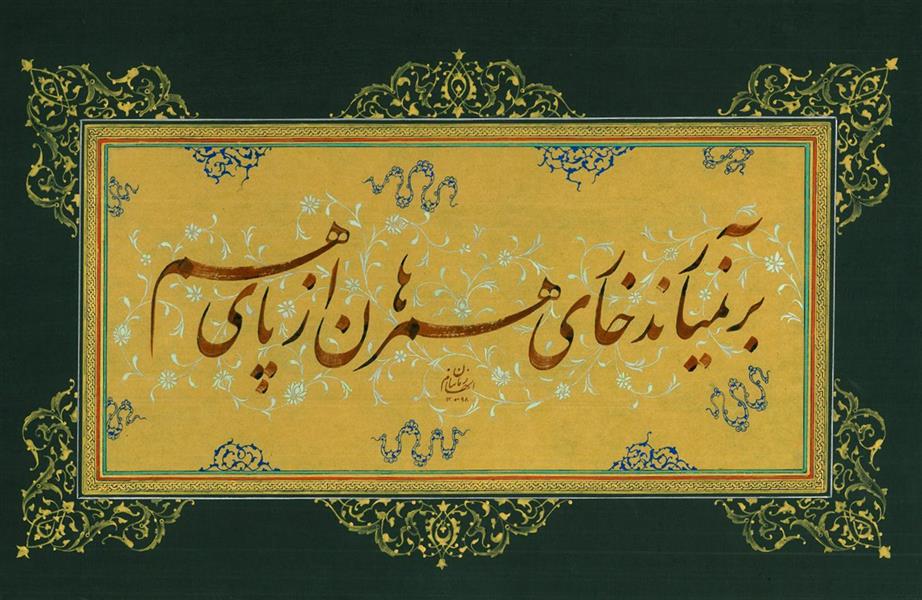 بر نمیآرند خاری همرهان از پای هم